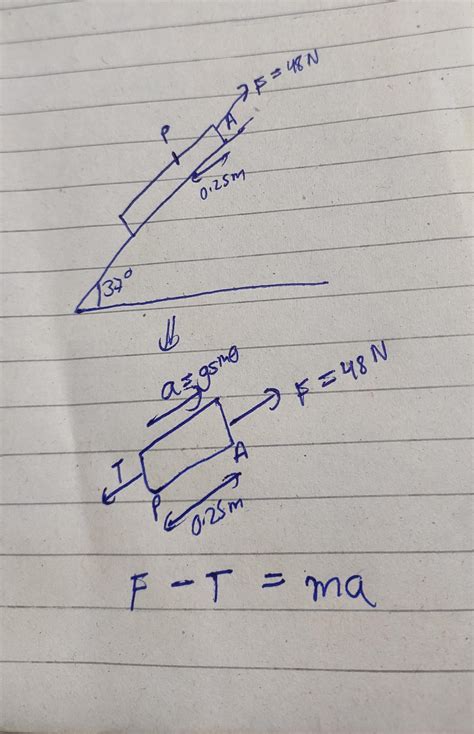 F = 48N
P
A
0.25m
37°
⇓
a = gsinθ
F = 48N
T
A
P
0.25m
F - T = ma